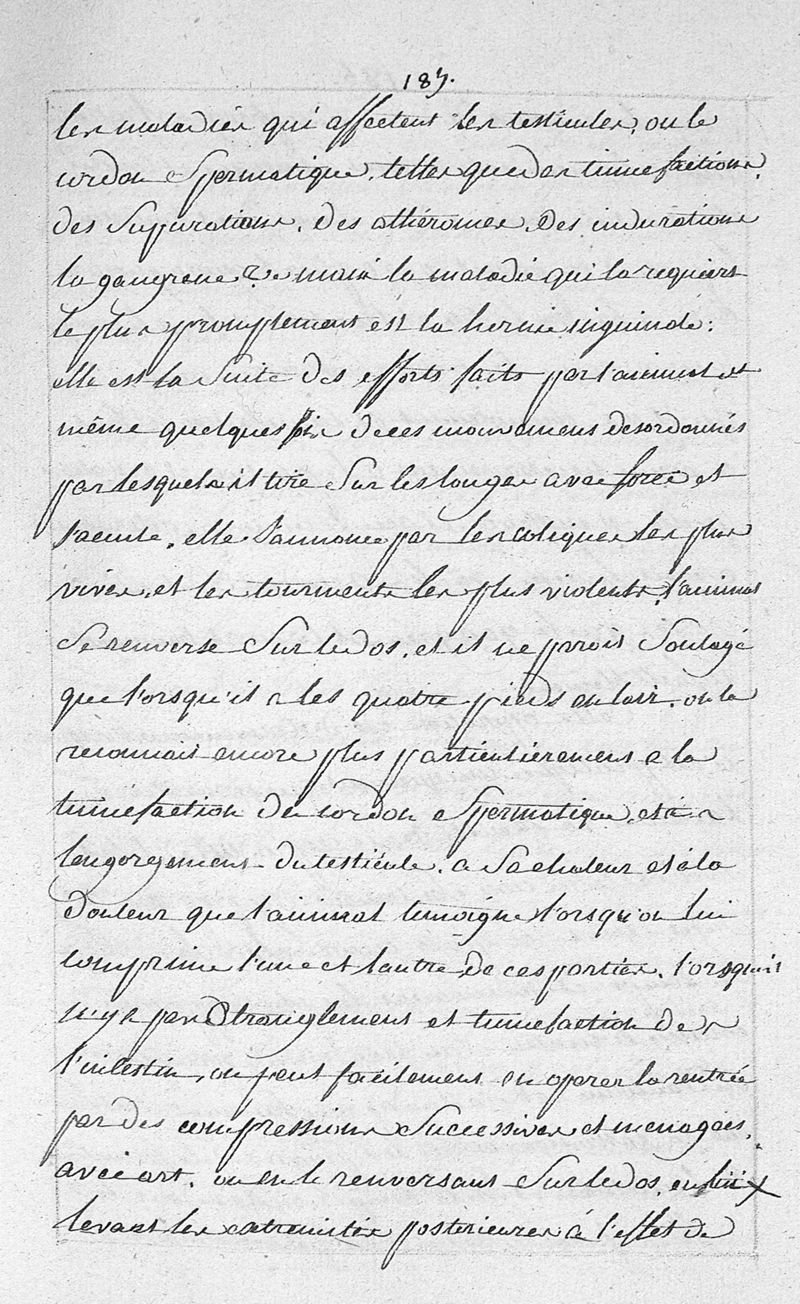 185.
les maladies qui affectent les testicules, ou le
cordon spermatique. telles que des tumefactions,
des supurations, des athéromes, des indurations
la gangrene &c mais la maladie qui la requiert
le plus promptement est la hernie inguinale:
elle est la suite des efforts faits par l'animal et
même quelques fois de ces mouvemens desordonnés
par lesquels il tire sur les longes avec force et
s'accule. elle s'annonce par les coliques les plus
vives, et les tourments les plus violents, l'animal
se renverse sur le dos, et il ne paroit soulagé
que lorsqu'il a les quatre pieds en lair. on la
reconnait encore plus particulierement a la
tumefaction du cordon spermatique, et à
lengorgement du testicule. a sa chaleur et à la
douleur que l'animal temoigne lorsqu'on lui
comprime l'une et lautre de ces parties. lorsquil
n'y a pas Etranglement et tumefaction de
l'intestin, on peut facilement en operer la rentrée
par des compressions successives et menagées,
avec art. ou en le renversant sur le dos, en lui
levant les extremités posterieures à l'effet de